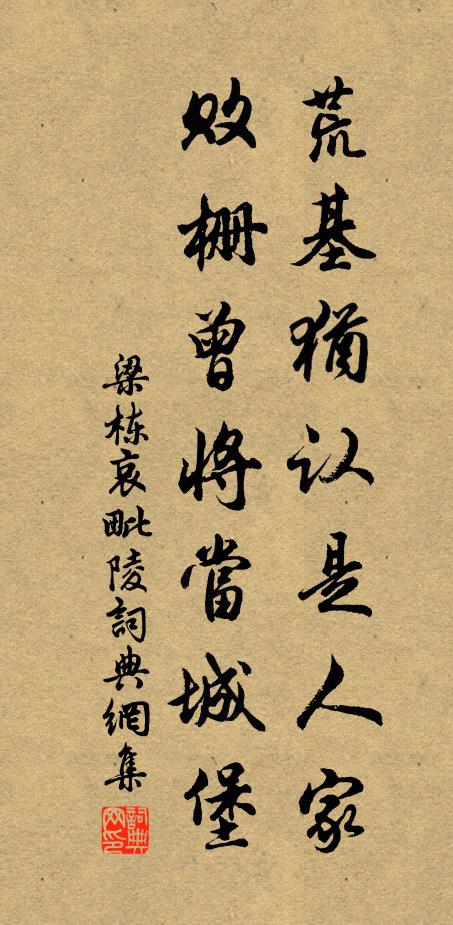 荒基猶认是人家
败栅曾将當城堡
梁栋哀毗陵詞典網集
詞典网印